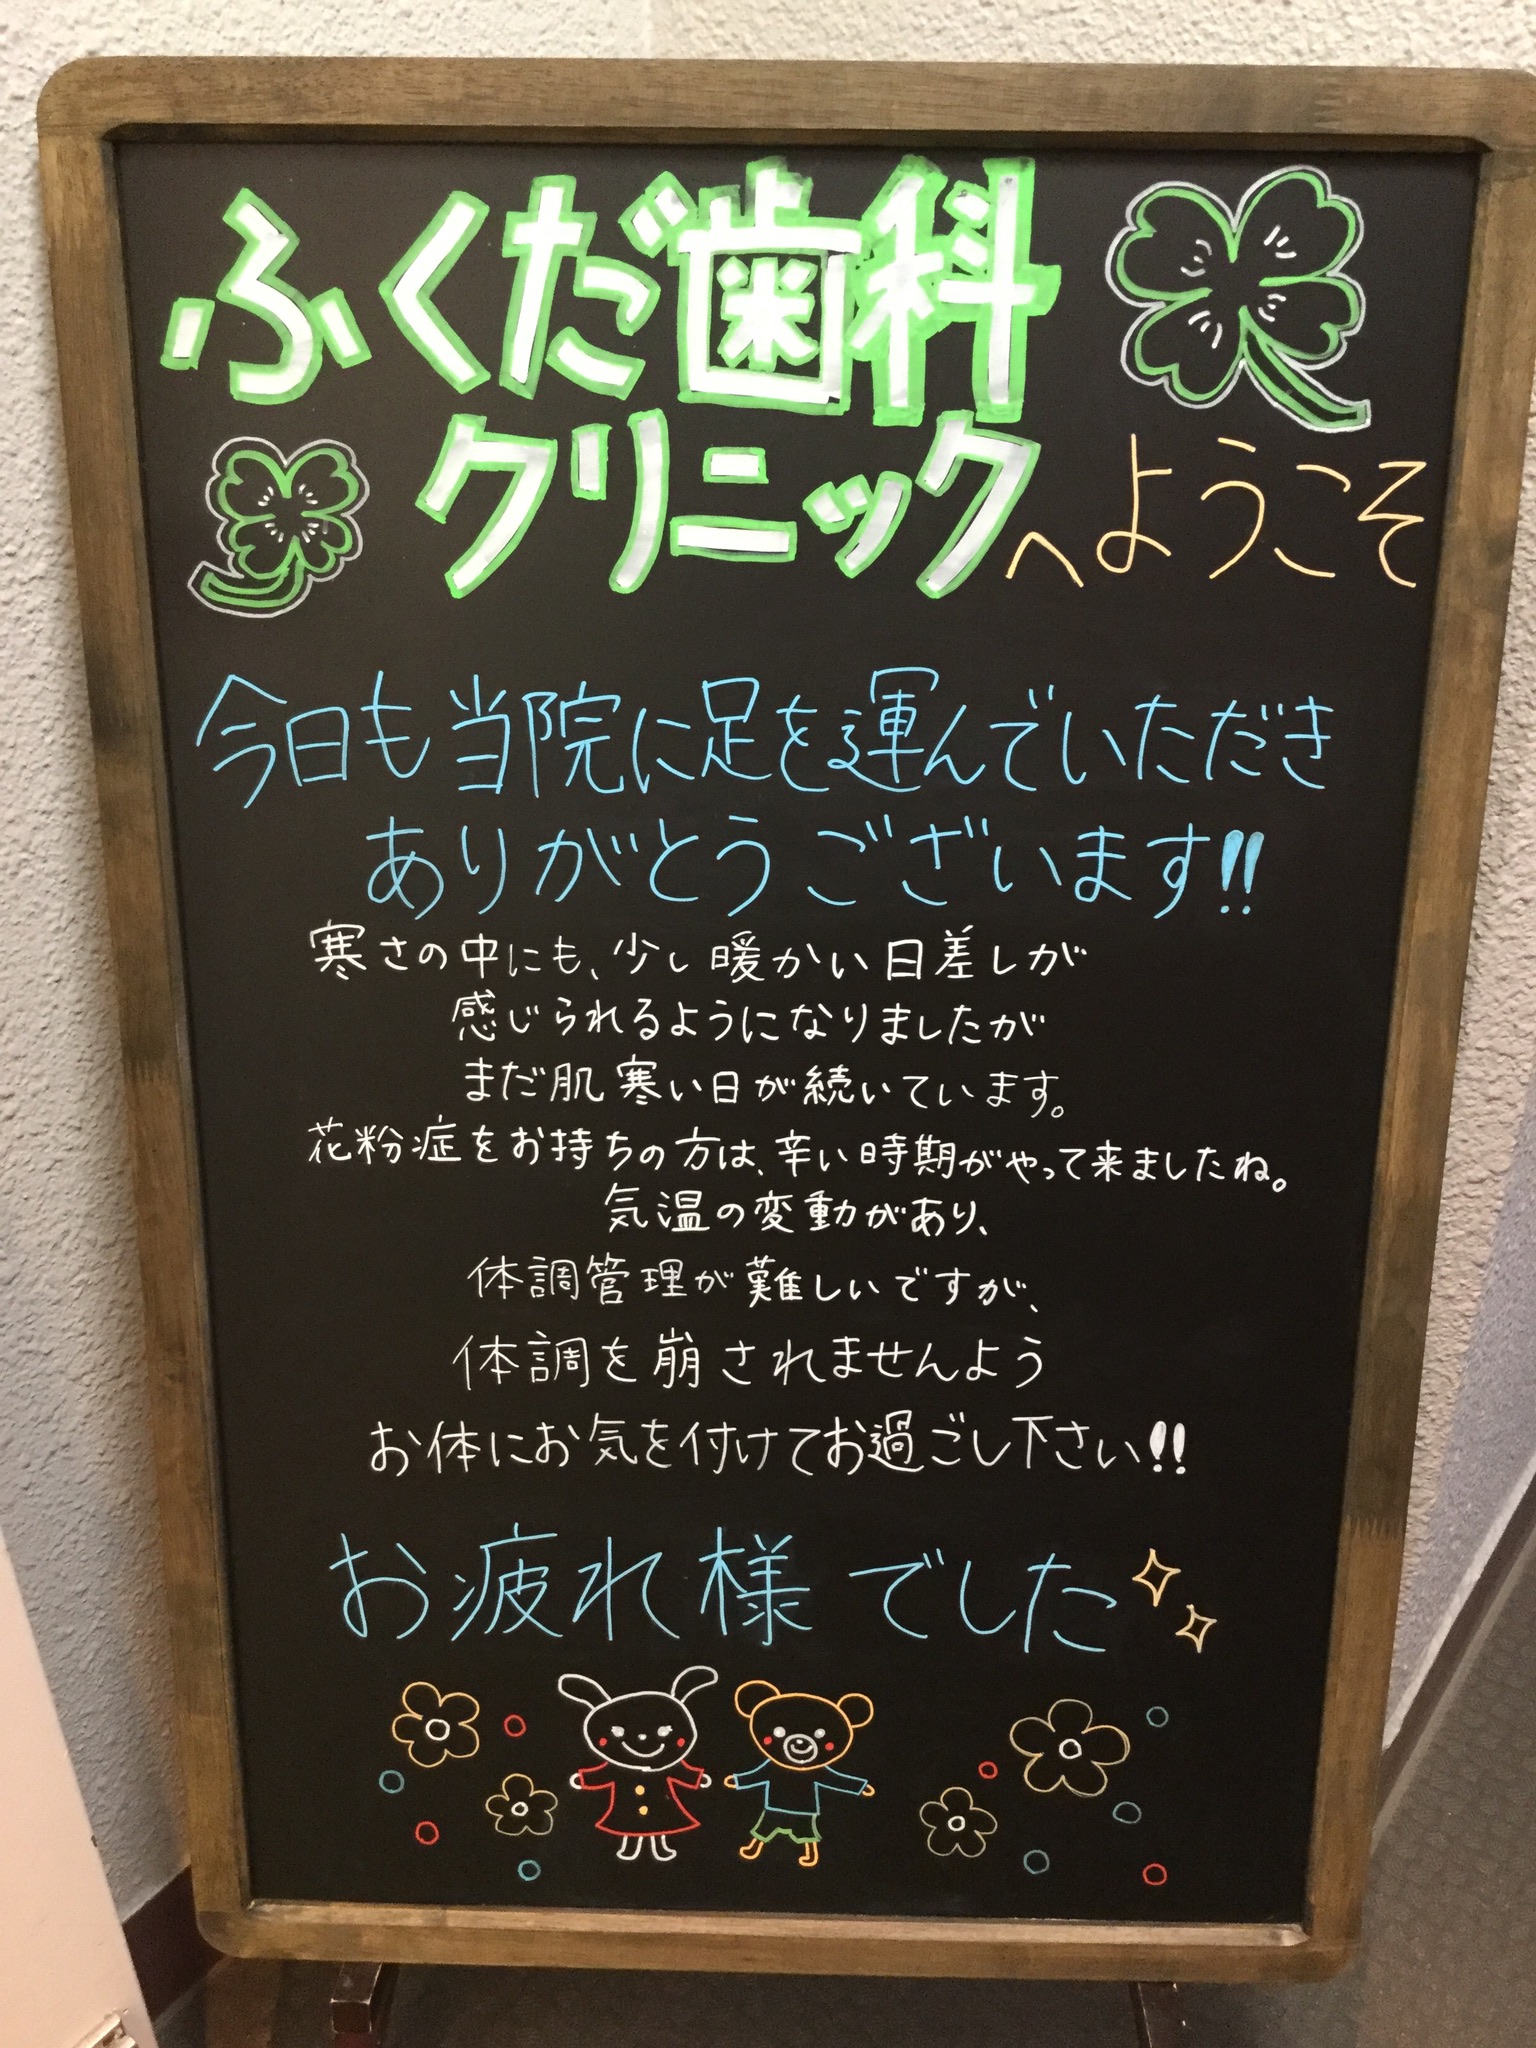 ふくだ歯科
クリニックへようこそ
今日も当院に足を運んでいただき
ありがとうございます!!
寒さの中にも、少し暖かい日差しが
感じられるようになりましたが
まだ肌寒い日が続いています。
花粉症をお持ちの方は、辛い時期がやって来ましたね。
気温の変動があり、
体調管理が難しいですが、
体調を崩されませんよう
お体にお気を付けてお過ごし下さい!!
お疲れ様でした